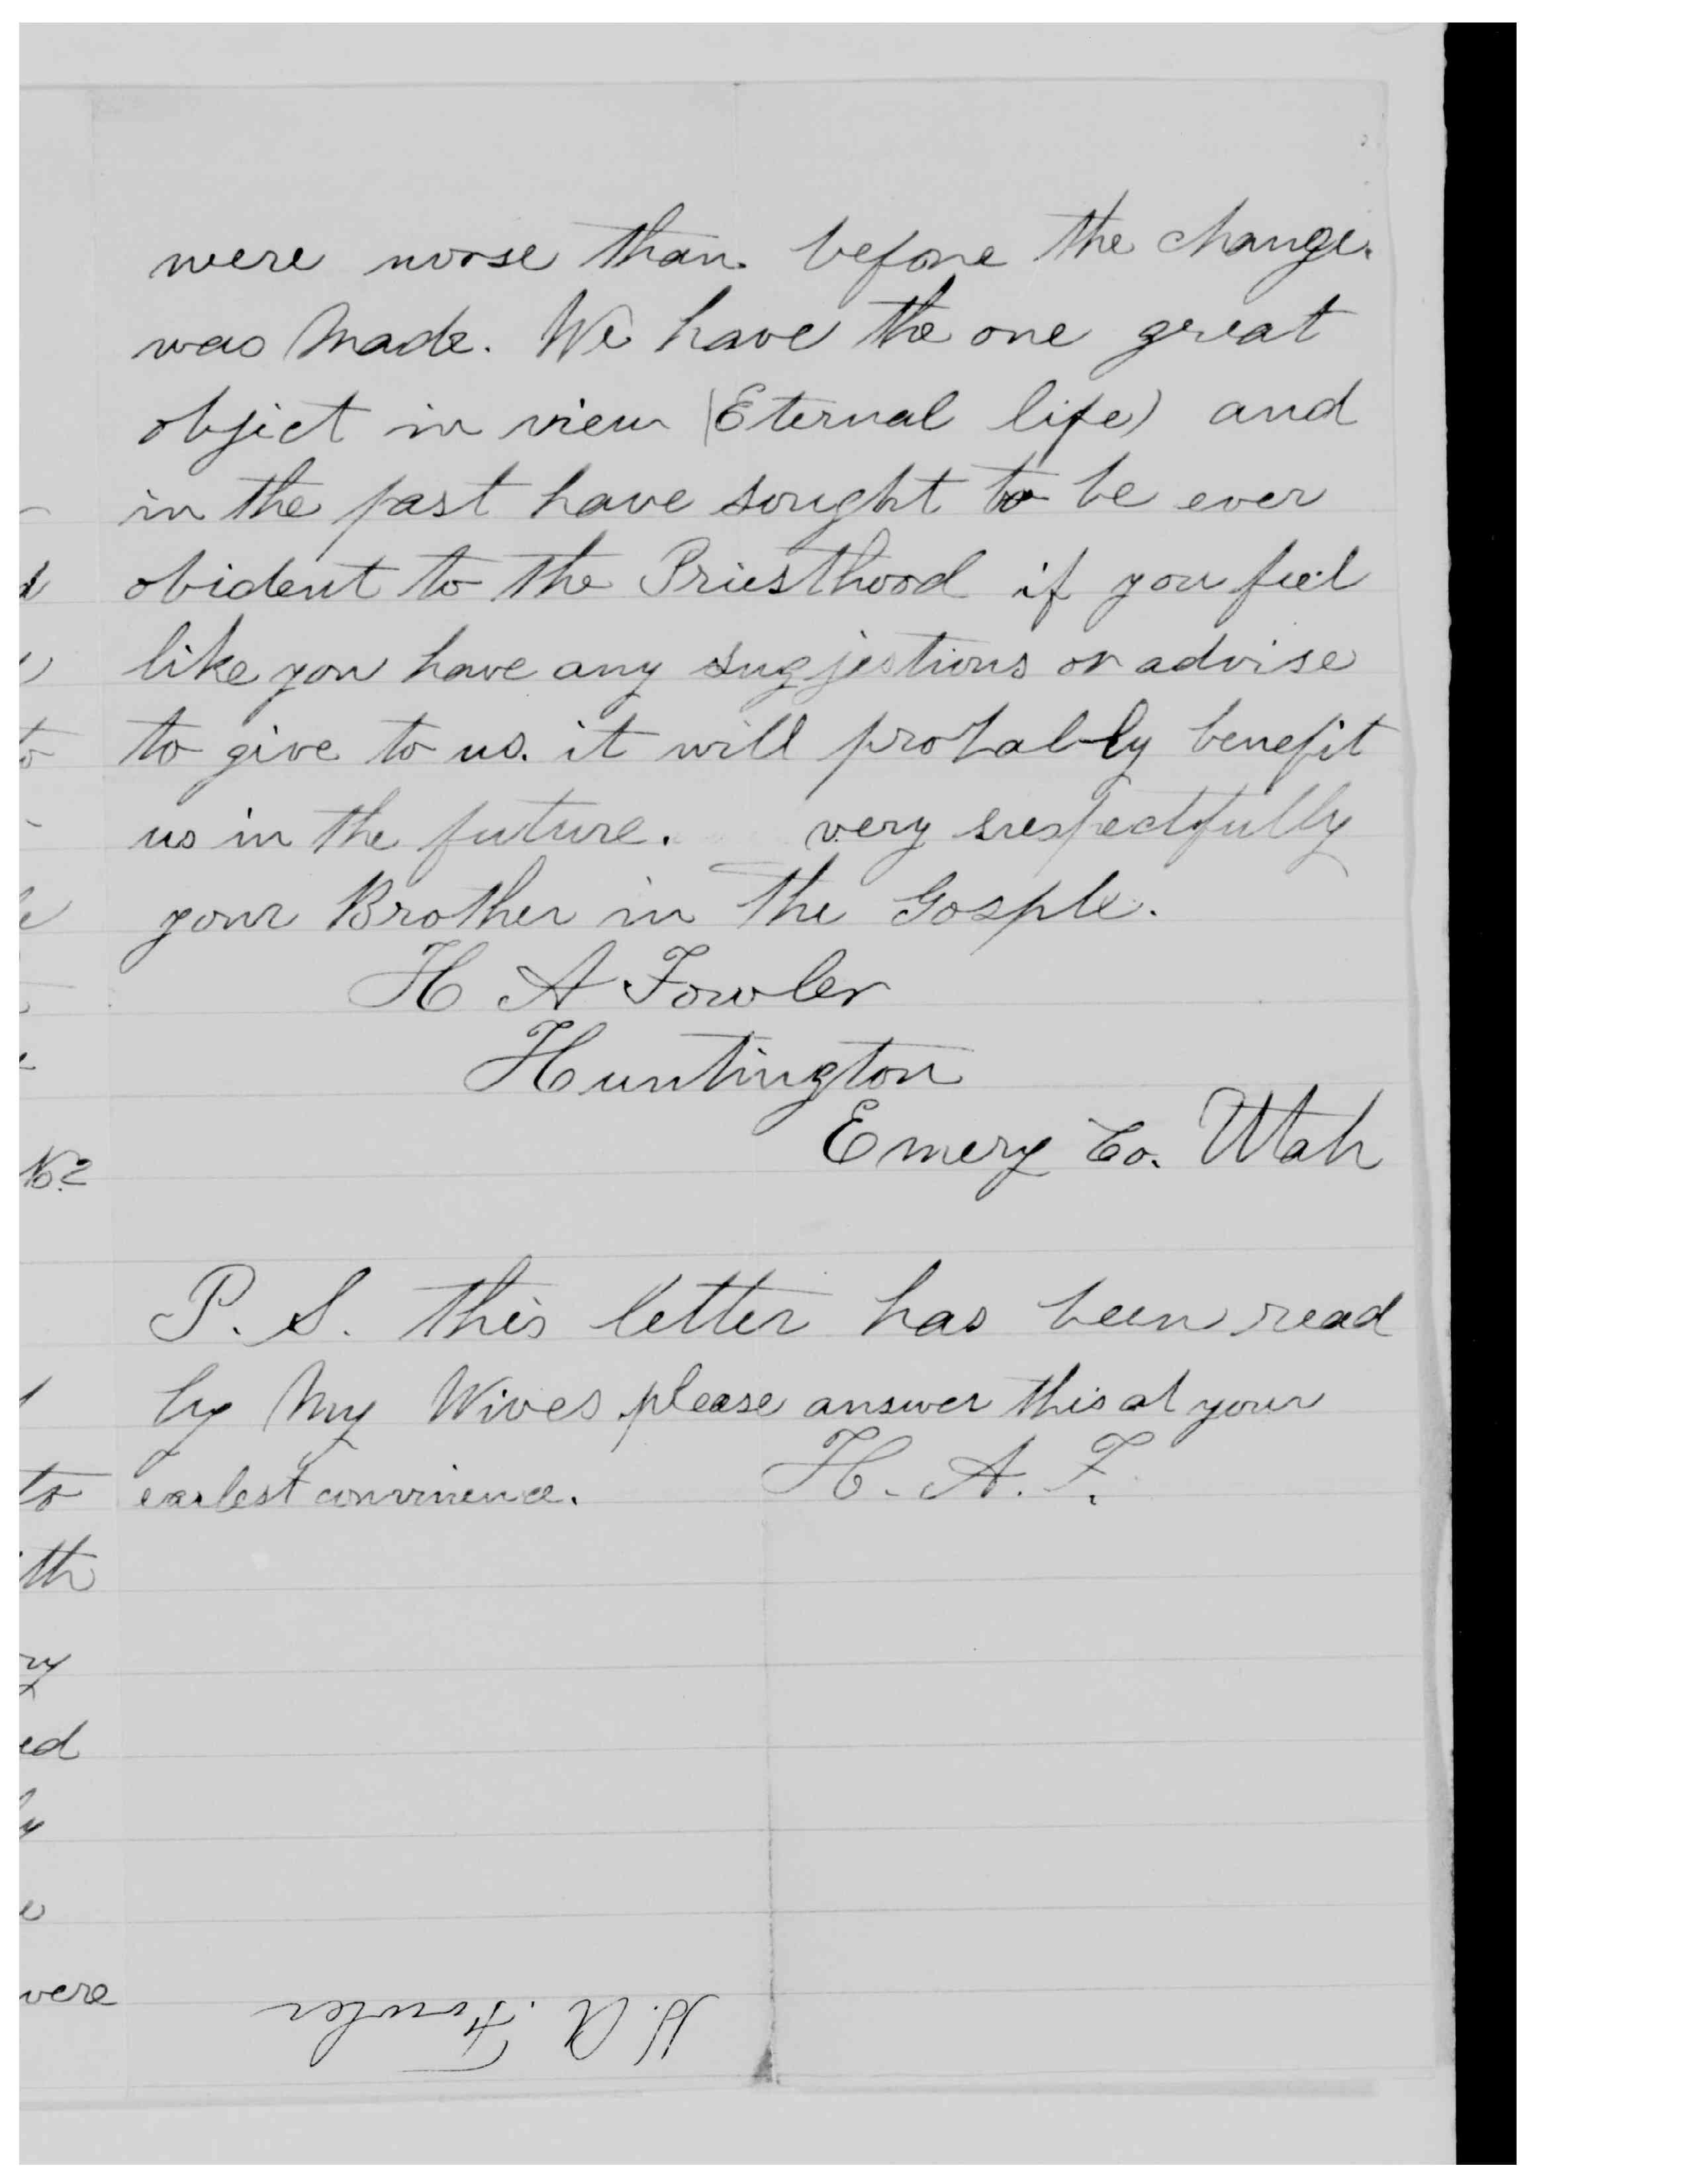 were worse than before the change.
was Made. We have the one great
object in view (Eternal life) and
in the past have sought to be ever
obident to the Priesthood if you feel
like you have any sugjestions or advise
to give to us. it will probably benefit
us in the future. very respectfully
your Brother in the Gosple.
H A Fowler
Huntington
Emery Co. Utah
P. S. this letter has been read
by My Wives please answer this at your
earlest convinience. H. A. F.
H. A. Fowler
d
to
No 2
to
th
ry
ed
ly
were